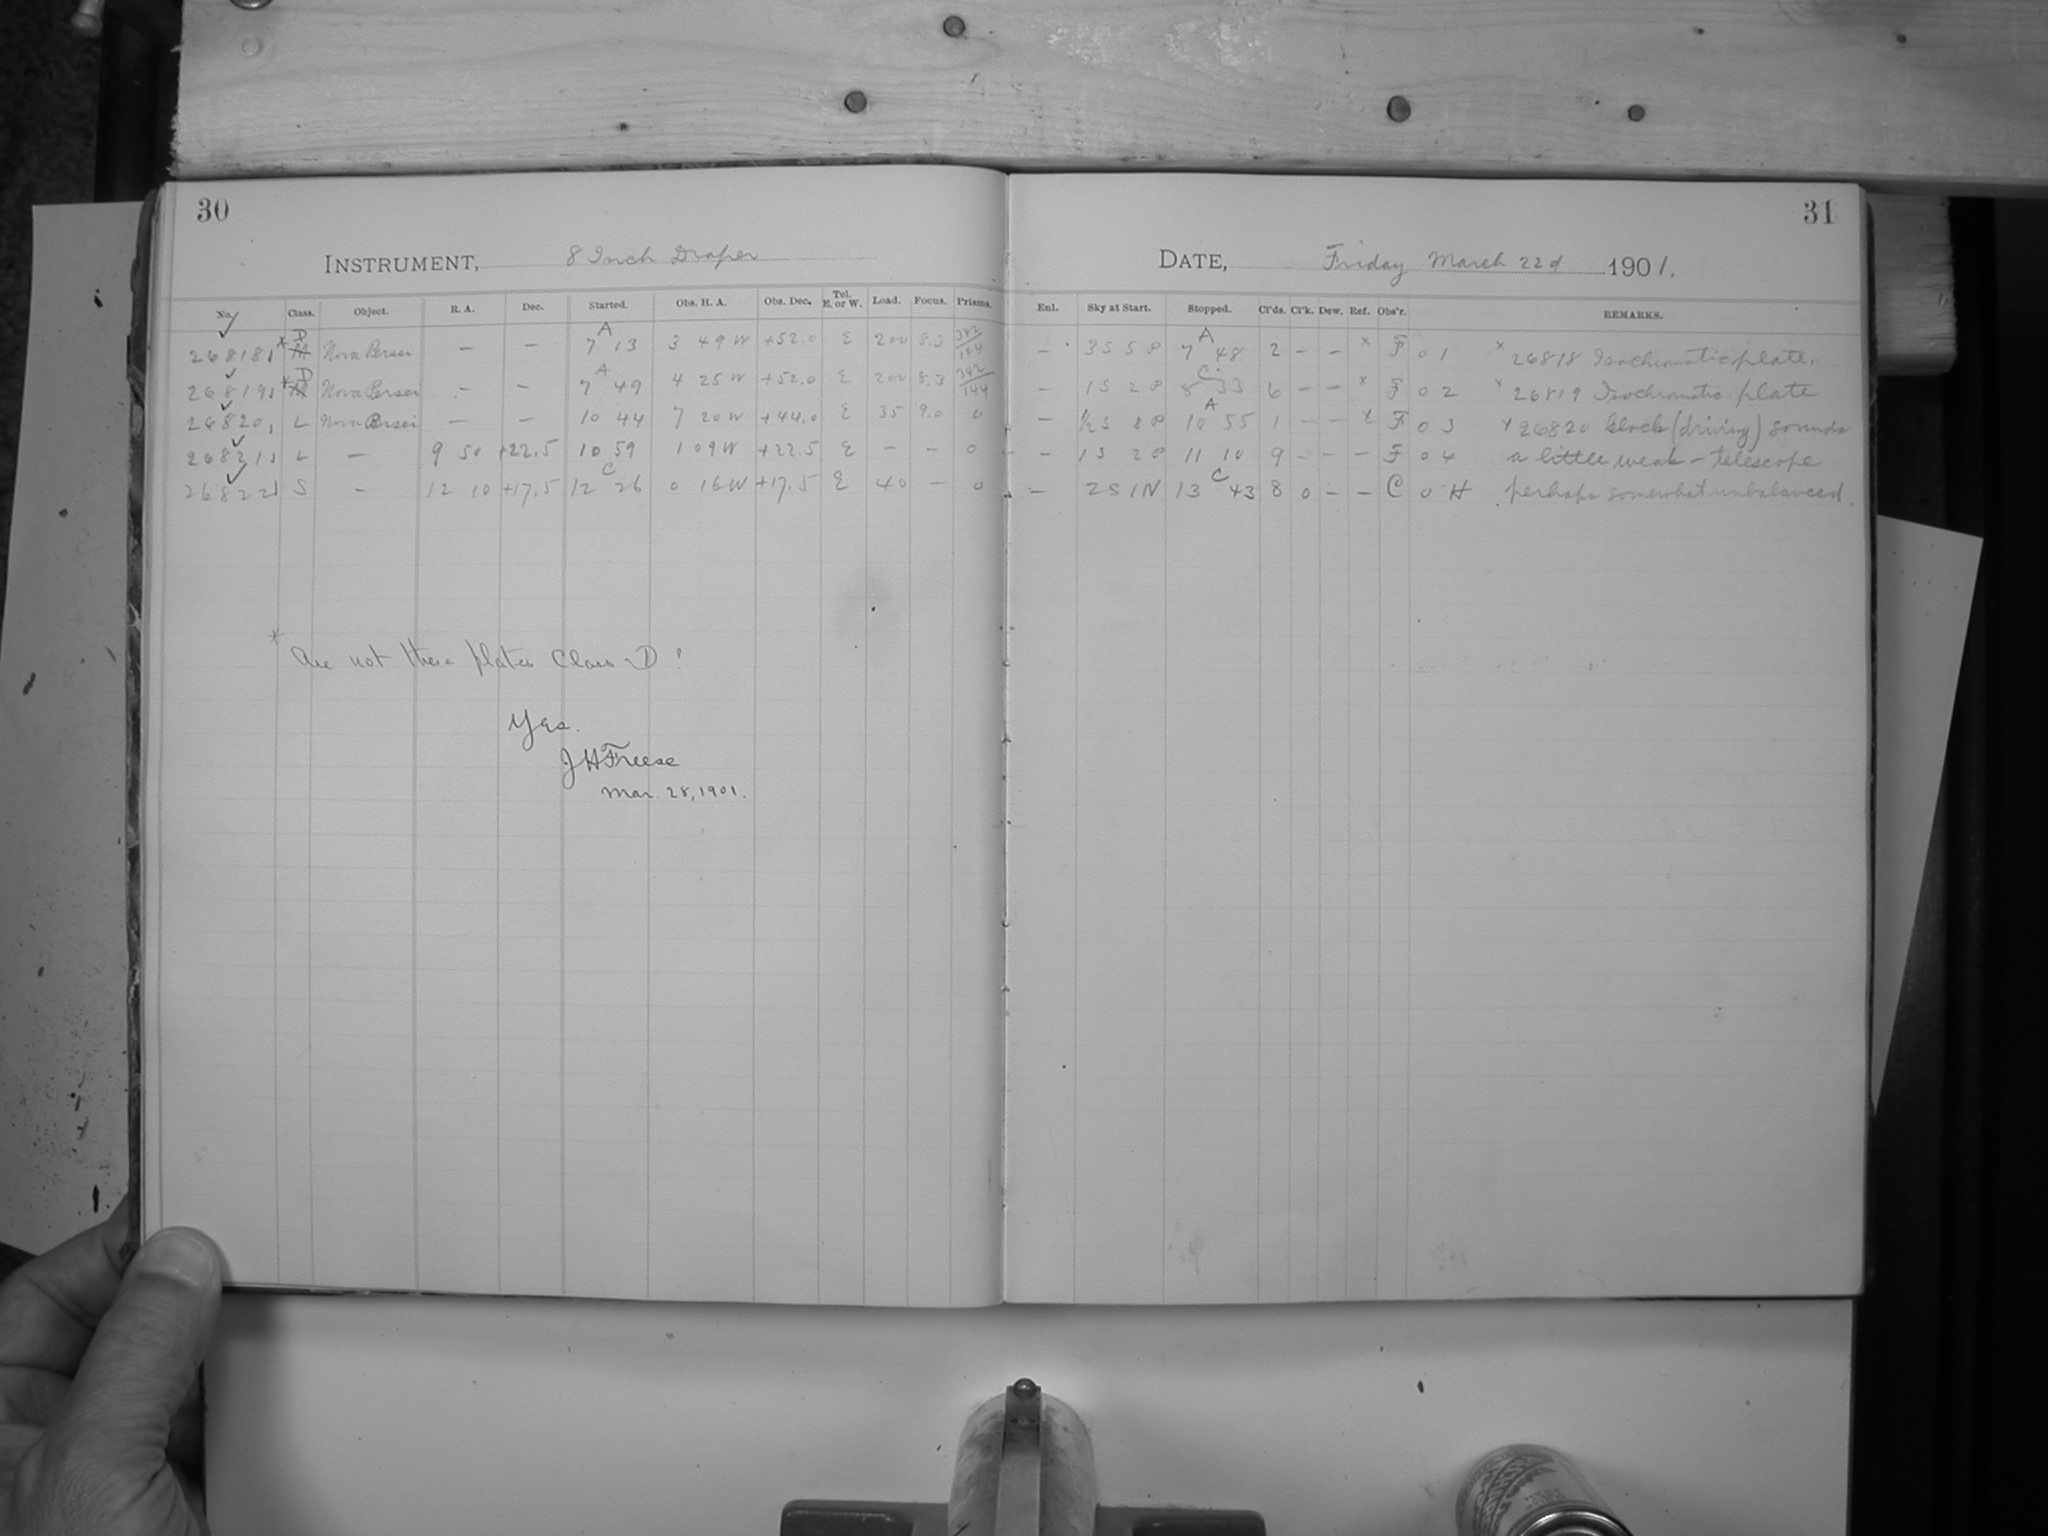 30
INSTRUMENT, 8 Inch Draper
No. Class. Object. R. A. Dec. Started. Obs. H. A. Obs. Dec. Tel. E. or W. Load. Focus. Prisms.
26818 D Nova Persei — — A 7 13 3 49 W +52.0 E 200 8.3
26819 D Nova Persei - - A 7 49 4 25 W +52.0 E 200 8.3 342/144
26820 L Nova Persei — — 10 44 7 20 W +44.0 E 35 9.0 0
26821 L — 9 50 +22.5 10 59 1 09 W +22.5 E - - 0
26822 S - 12 10 +17.5 C 12 26 0 16 W +17.5 E 40 - 0
* Are not these plates Class D?
Yes.
J H Freese
Mar. 28, 1901.
31
DATE, Friday March 22d 1901.
Enl. Sky at Start. Stopped. Cl'ds. Cl'k. Dew. Ref. Obs'r. REMARKS.
— 3S 5P A 7 48 2 - - x F 01 x 26818 Isochromatic plate.
— 1S 2P C 8 33 6 - - x F 02 x 26819 Isochromatic plate
— ½S 8P A 10 55 1 - - x F 03 x 26820 clock (driving) sounds
- 1S 2P 11 10 9 - - - F 04 a little weak - telescope
— 2S 1N C 13 43 8 0 - - C 0 H perhaps somewhat unbalanced.